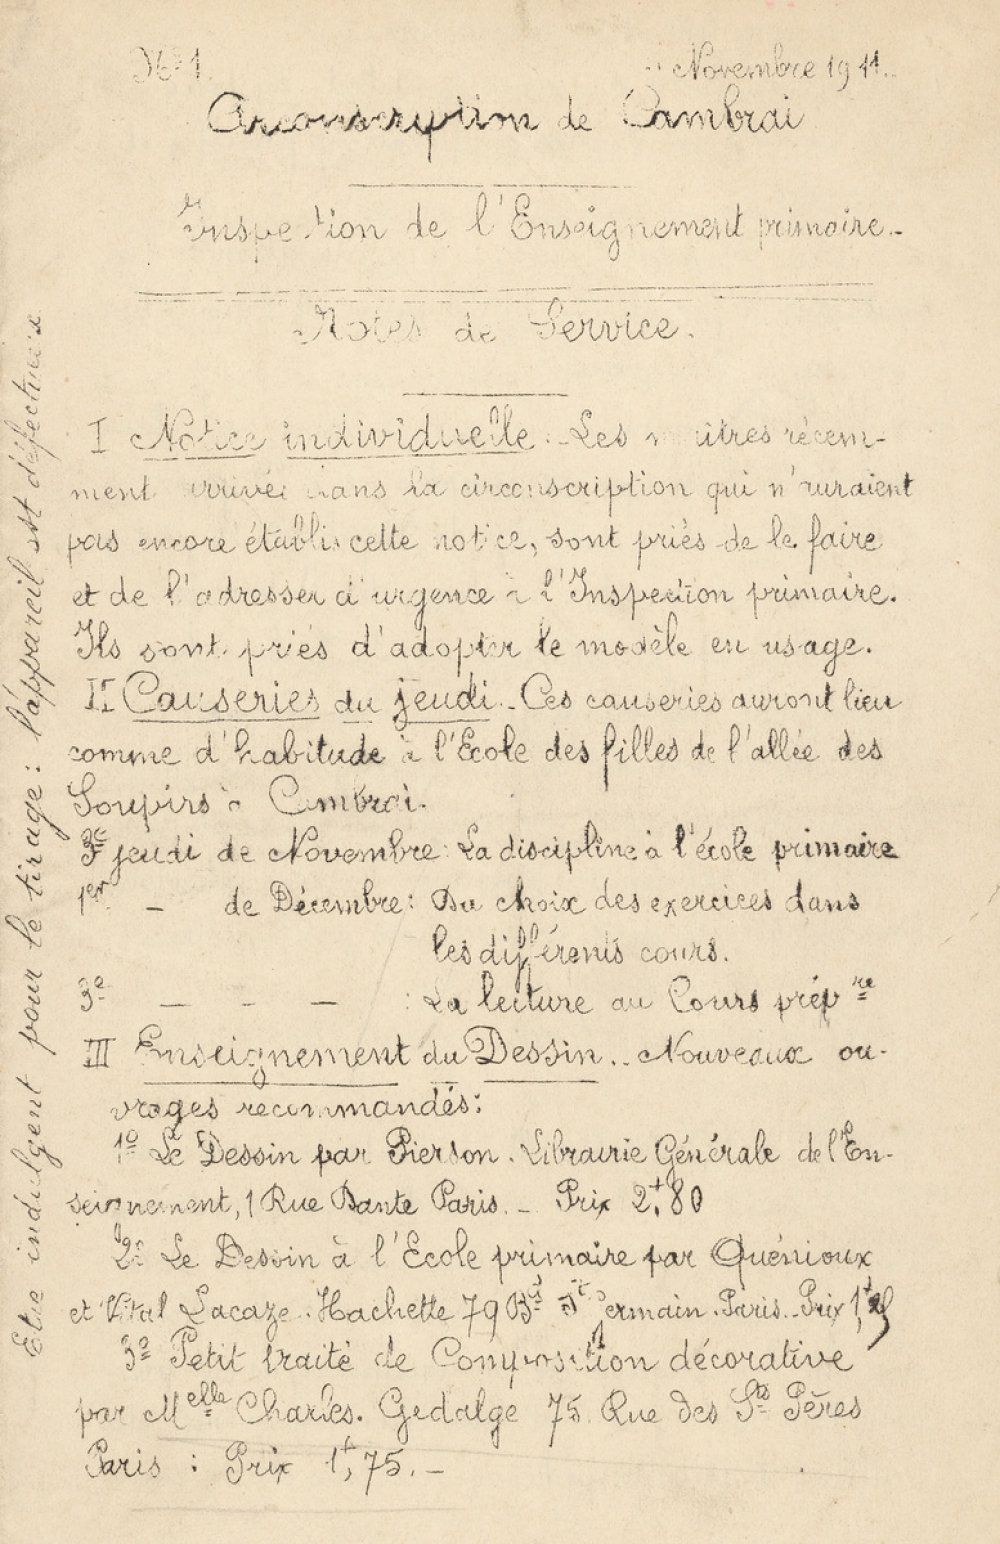 No 1.
Novembre 1911.
Circonscription de Cambrai
Inspection de l'Enseignement primaire.-
Notes de Service.
I Notice individuelle. Les maîtres récem-
ment arrivés dans la circonscription qui n'auraient
pas encore établi cette notice, sont priés de le faire
et de l'adresser d'urgence à l'Inspection primaire.
Ils sont priés d'adopter le modèle en usage.
II Causeries du jeudi.- Ces causeries auront lieu
comme d'habitude à l'Ecole des filles de l'allée des
Soupirs à Cambrai.
3e jeudi de Novembre: La discipline à l'école primaire
1er - de Décembre: Du choix des exercices dans
les différents cours.
3e - - - : La lecture au Cours prépre
III Enseignement du Dessin.- Nouveaux ou-
vrages recommandés:
1o Le Dessin par Pierson. Librairie Générale de l'En-
seignement, 1 Rue Dante Paris. - Prix 2f,80
2o Le Dessin à l'Ecole primaire par Quénioux
et Vital Lacaze. Hachette 79 Bd St Germain. Paris. Prix 1f,
3o Petit traité de Composition décorative
par Melle Charles. Gedalge 75 Rue des Sts Pères
Paris : Prix 1f,75.-
Etre indulgent pour le tirage: l'appareil est défectueux